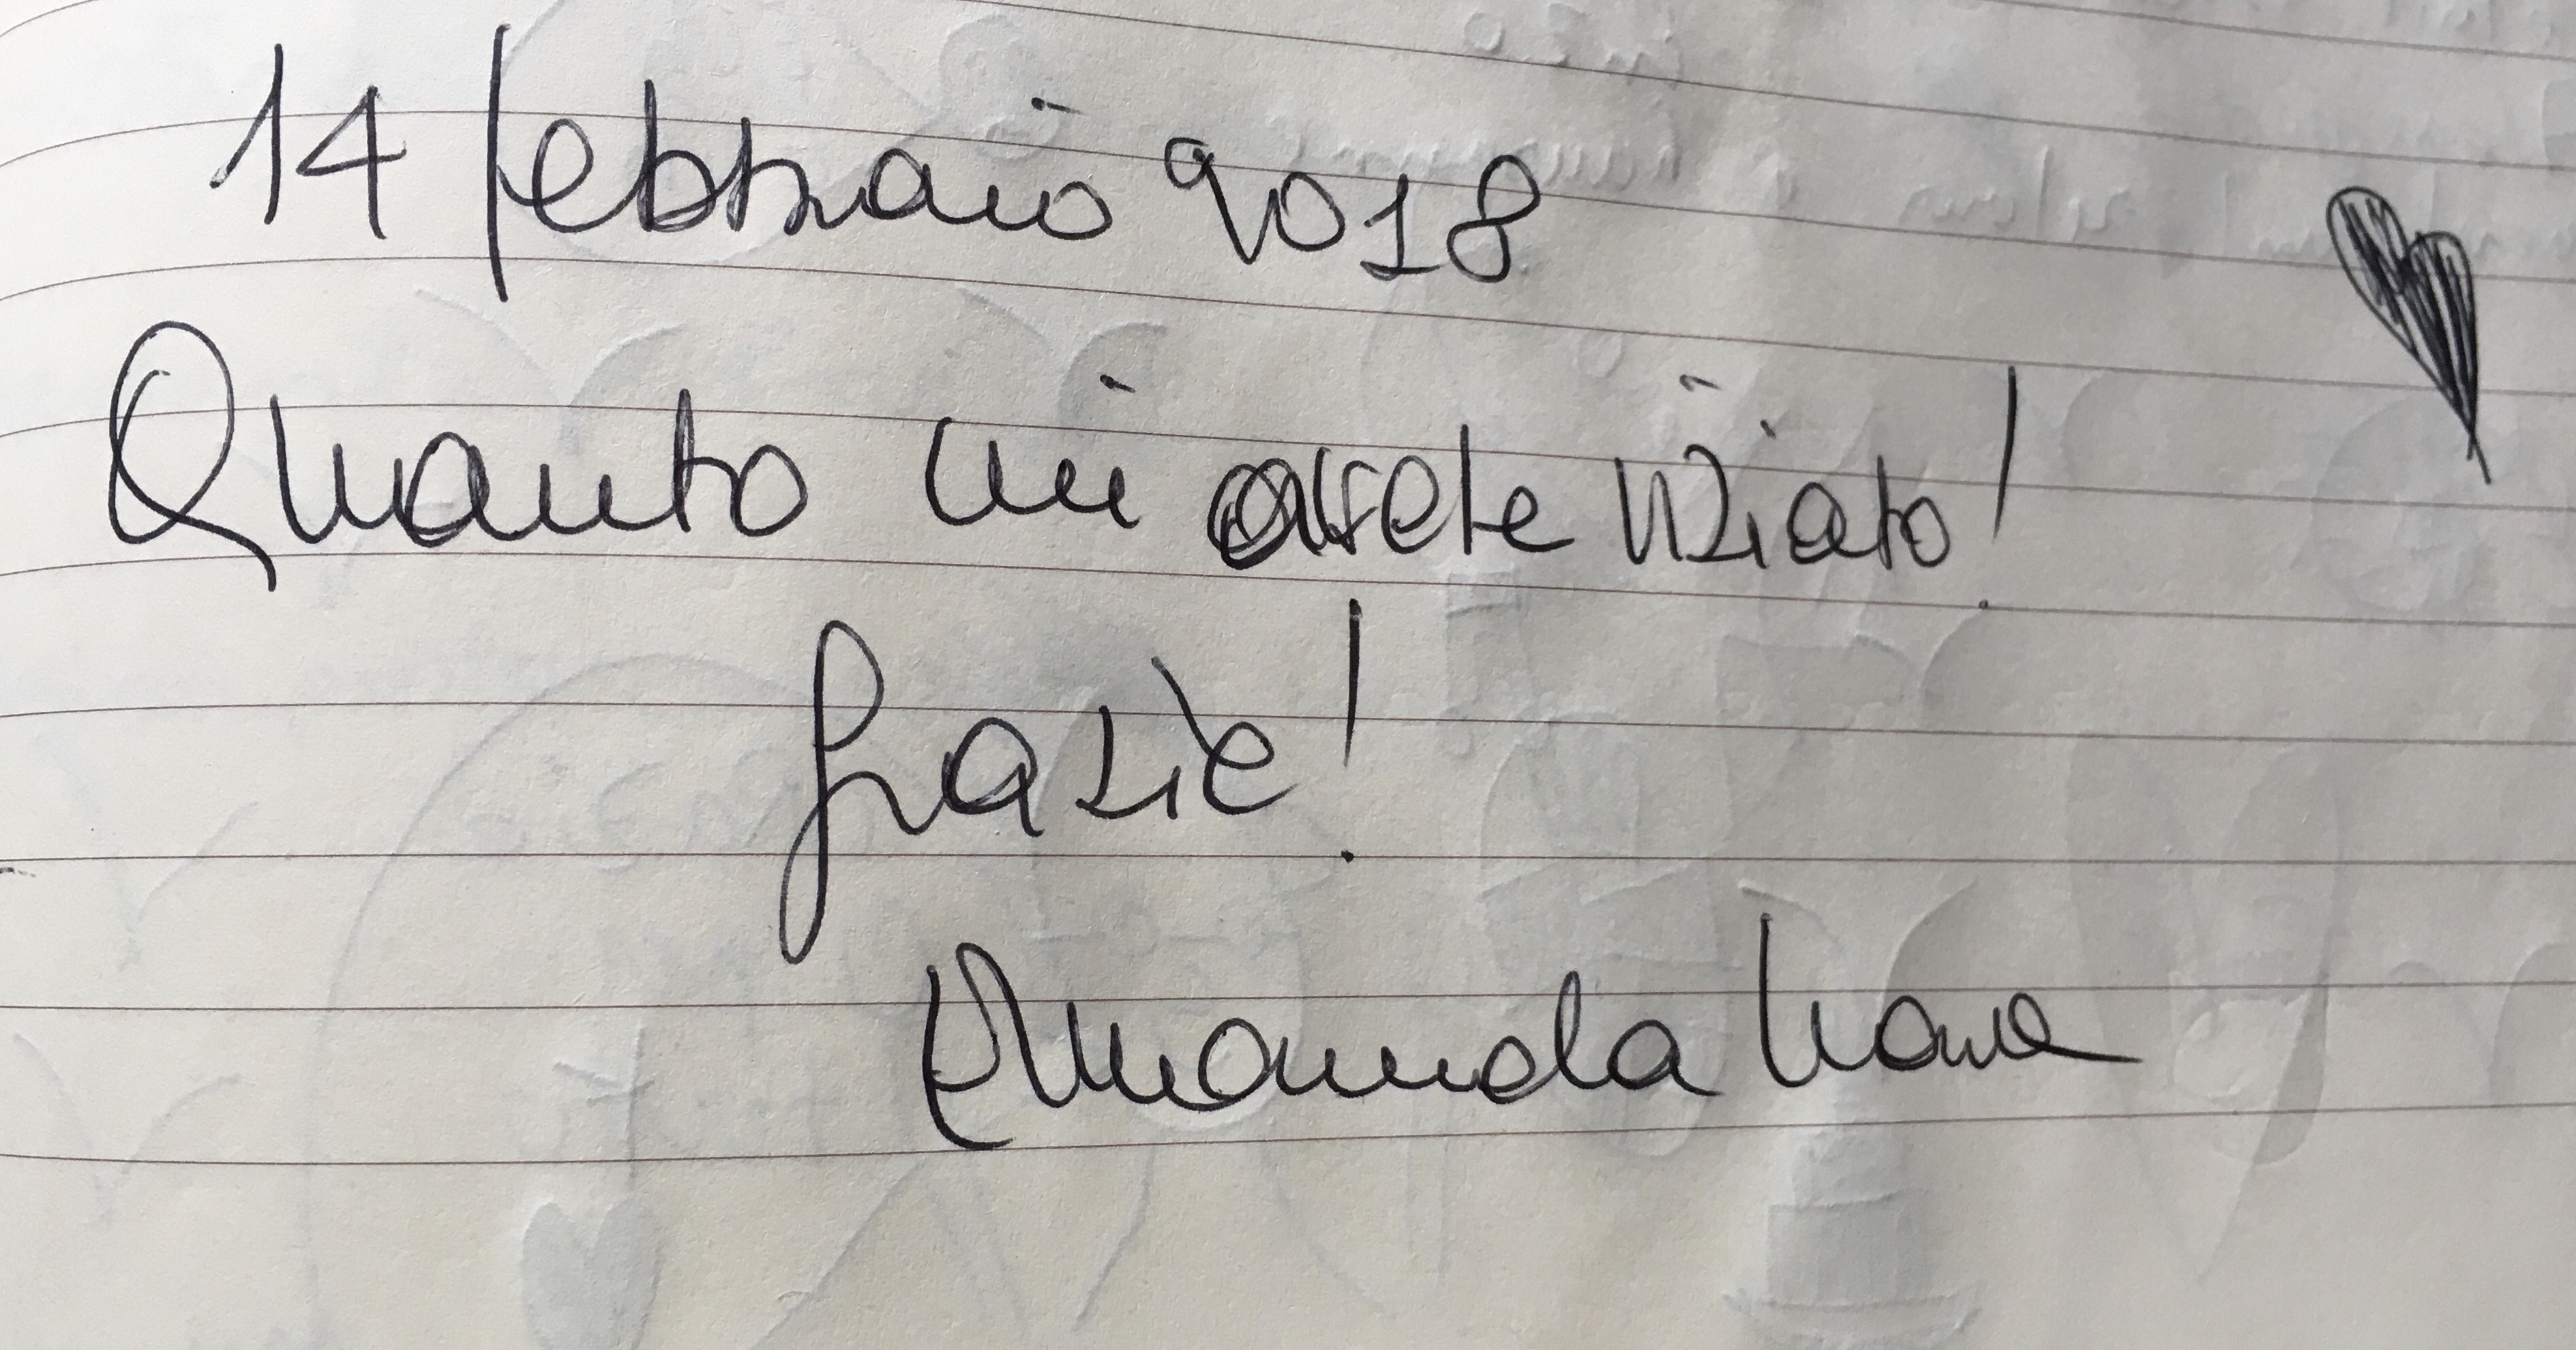 14 febbraio 2018
Quanto mi avete viziato!
Grazie!
Amanda